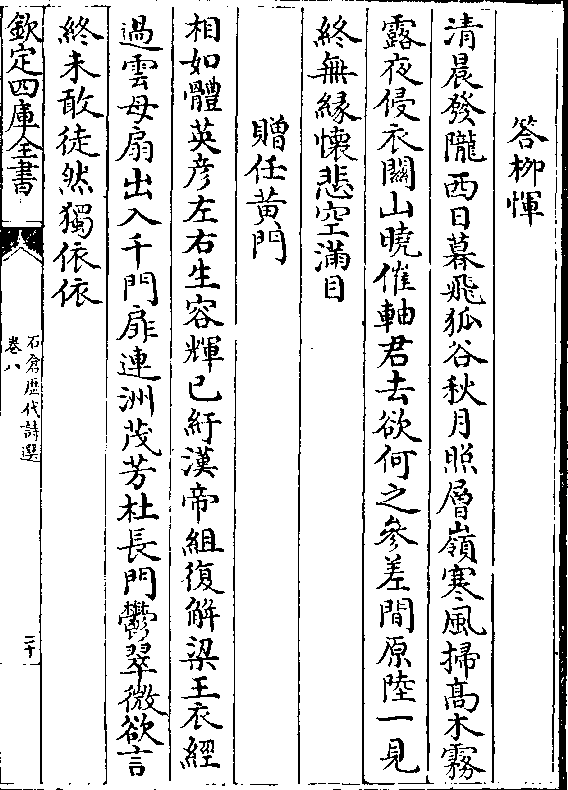 答柳惲
清晨發隴西日暮飛狐谷秋月照層嶺寒風掃髙木霧
露夜侵衣關山曉催軸君去欲何之參差間原陸一見
終無緣懷悲空滿目
贈任黄門
相如體英彦左右生容輝已紆漢帝組復解梁王衣經
過雲母扇出入千門扉連洲茂芳杜長門鬱翠微欲言
終未敢徒然獨依依
欽定四庫全書
石倉歴代詩選
卷八
二十